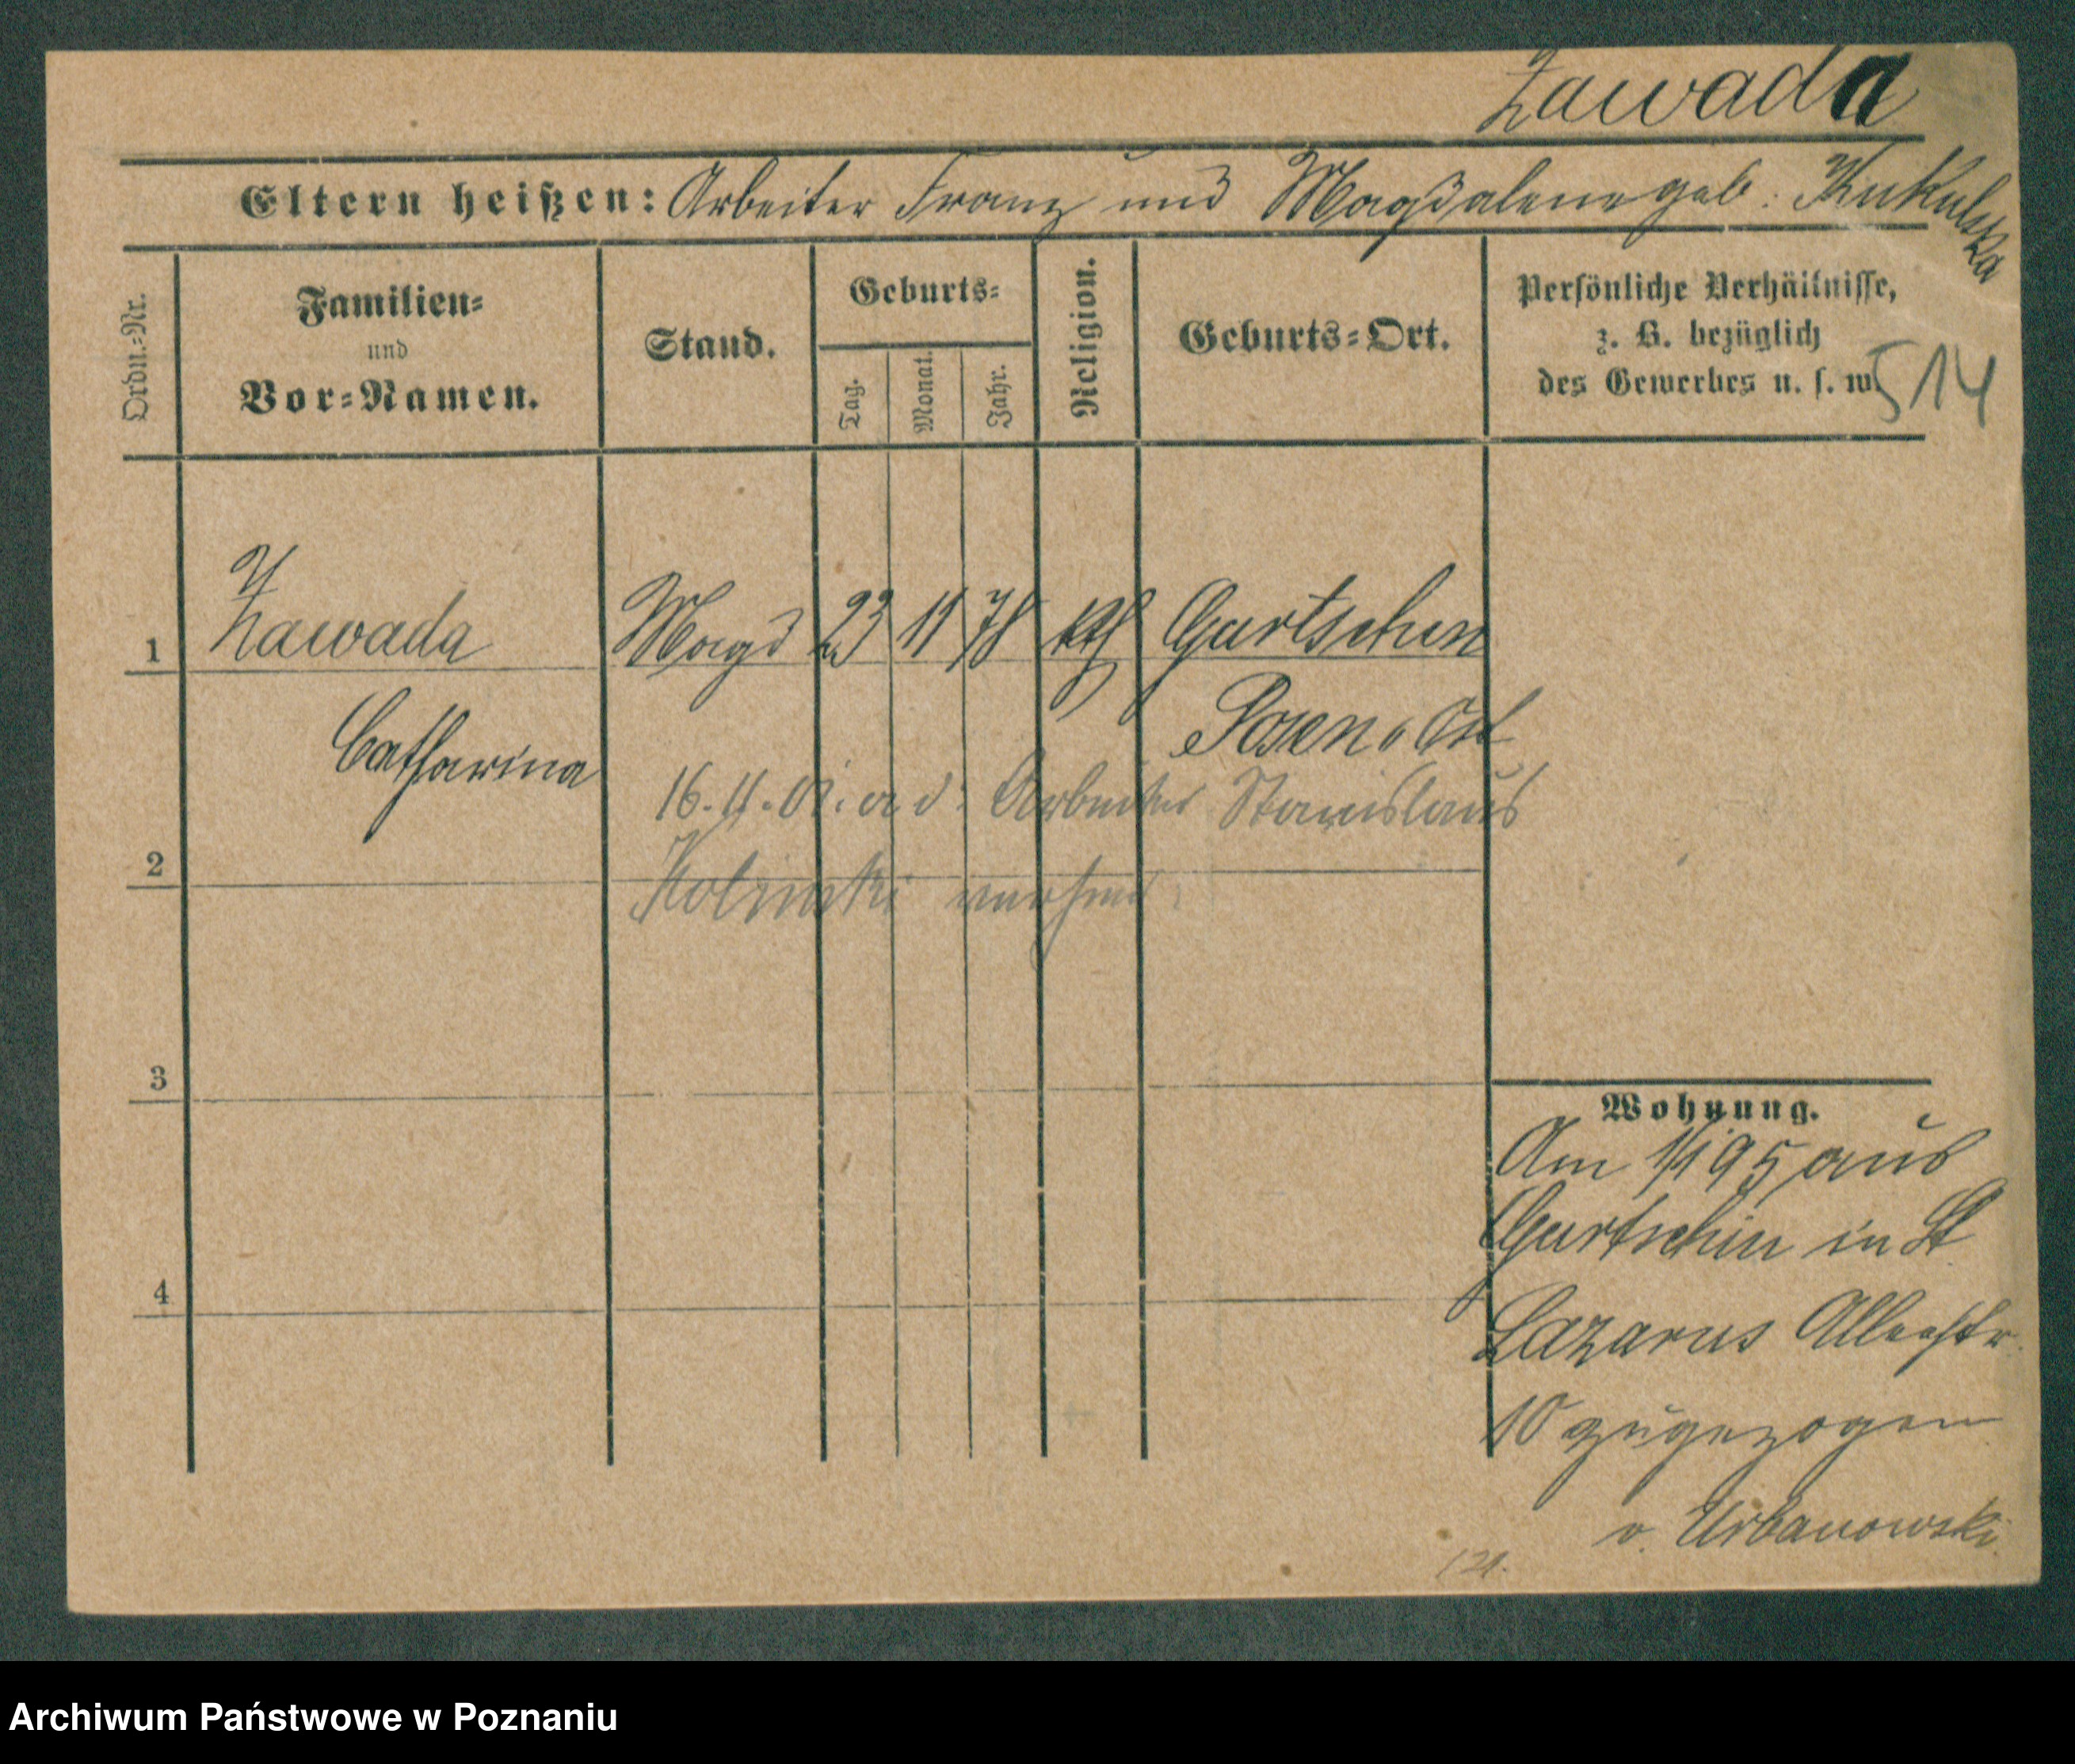 Zawada
Eltern heißen: Arbeiter Franz und Magdalene geb. Kukulska
Ordn.-Nr.
Familien-
und
Vor-Namen.
Stand.
Geburts-
Tag.
Monat.
Jahr.
Religion.
Geburts-Ort.
Persönliche Verhältnisse,
z. B. bezüglich
des Gewerbes u. s. w.
514
1 Zawada Magd 23 11 78 kth Gurtschin
Catharina Posen Ost
16.11.01. a. d. Arbeiter Stanislaus
verh.
2
3
4
Wohnung.
Am 1/1 95 aus
Gurtschin in St
Lazarus Alleestr.
10 zugezogen
v. Urbanowski
121.
Archiwum Państwowe w Poznaniu